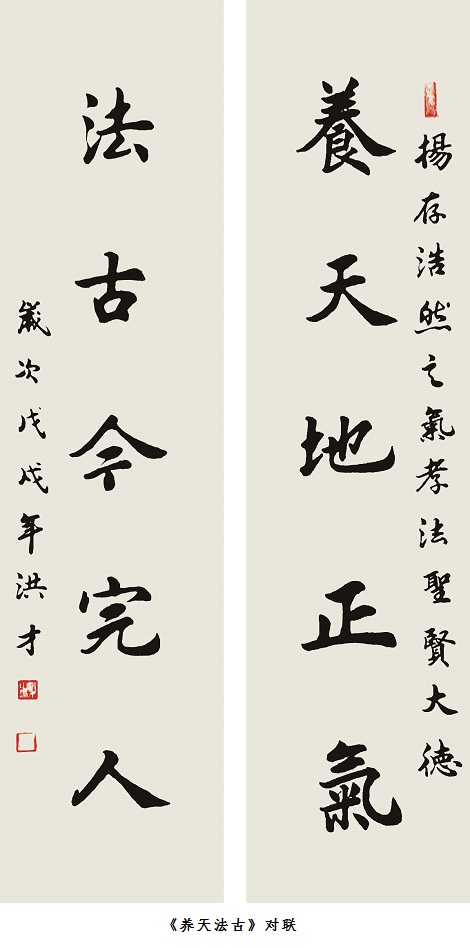 揚存浩然之氣孝法聖賢大德
養天地正氣
法古今完人
歲次戊戌年洪才
《养天法古》对联